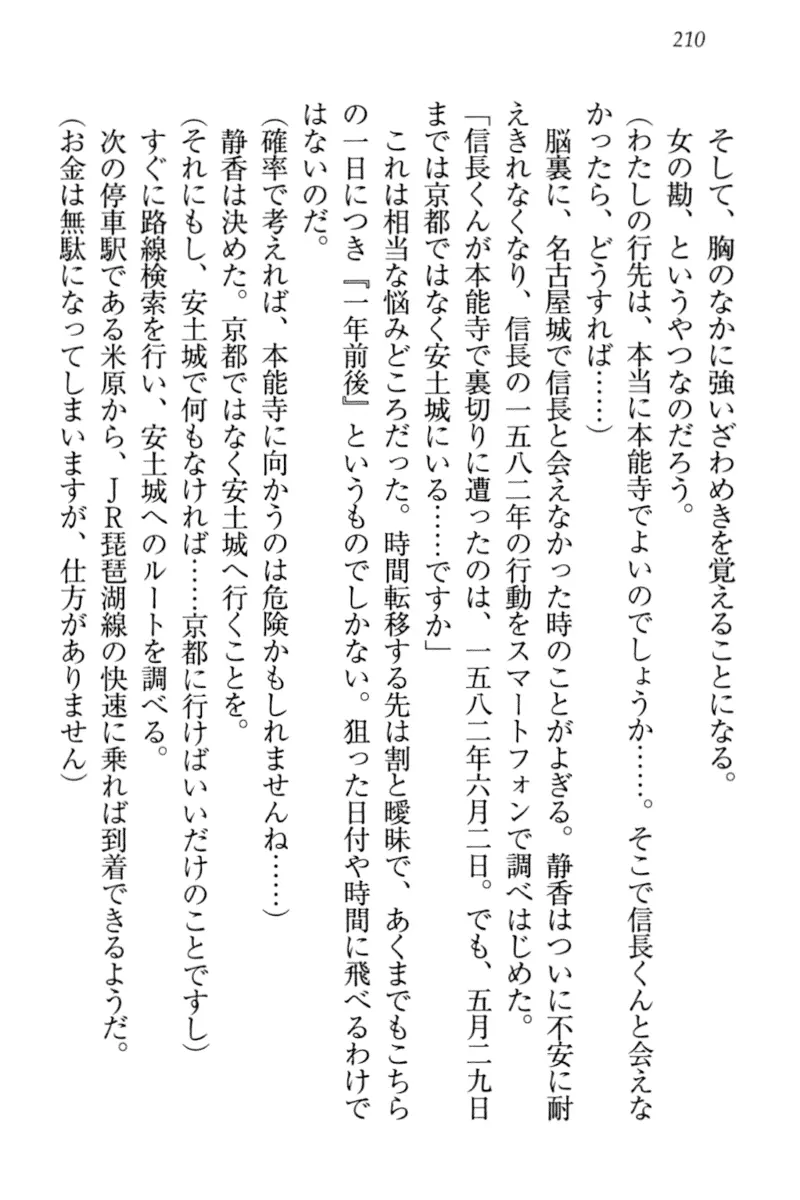 210
そして、胸のなかに強いざわめきを覚えることになる。
女の勘、というやつなのだろう。
(わたしの行先は、本当に本能寺でよいのでしょうか……。そこで信長くんと会えな
かったら、どうすれば……)
脳裏に、名古屋城で信長と会えなかった時のことがよぎる。静香はついに不安に耐
えきれなくなり、信長の一五八二年の行動をスマートフォンで調べはじめた。
「信長くんが本能寺で裏切りに遭ったのは、一五八二年六月二日。でも、五月二九日
までは京都ではなく安土城にいる……ですか」
これは相当な悩みどころだった。時間転移する先は割と曖昧で、あくまでもこちら
の一日につき『一年前後』というものでしかない。狙った日付や時間に飛べるわけで
はないのだ。
(確率で考えれば、本能寺に向かうのは危険かもしれませんね……)
静香は決めた。京都ではなく安土城へ行くことを。
(それにもし、安土城で何もなければ……京都に行けばいいだけのことですし)
すぐに路線検索を行い、安土城へのルートを調べる。
次の停車駅である米原から、JR琵琶湖線の快速に乗れば到着できるようだ。
(お金は無駄になってしまいますが、仕方がありません)